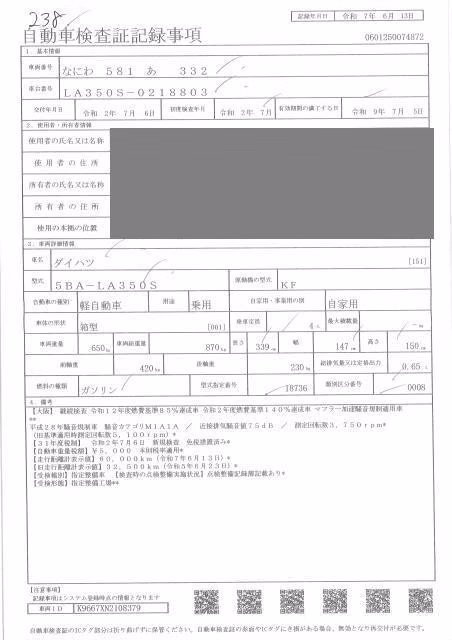 238
記録年月日 令和 7年 6月 13日
自動車検査証記録事項 0601250074872
1. 基本情報
車両番号 なにわ 581 あ 332
車台番号 LA350S-0218803
交付年月日 令和 2年 7月 6日 初度検査年月 令和 2年 7月 有効期間の満了する日 令和 9年 7月 5日
2. 使用者・所有者情報
使用者の氏名又は名称
使用者の住所
所有者の氏名又は名称
所有者の住所
使用の本拠の位置
3. 車両詳細情報
車名 ダイハツ [151]
型式 5BA-LA350S 原動機の型式 KF
自動車の種別 軽自動車 用途 乗用 自家用・事業用の別 自家用
車体の形状 箱型 [001] 乗車定員 4人 最大積載量 -kg
車両重量 650kg 車両総重量 870kg 長さ 339cm 幅 147cm 高さ 150cm
前軸重 420kg 後軸重 230kg 総排気量又は定格出力 0.65L
燃料の種類 ガソリン 型式指定番号 18736 類別区分番号 0008
4. 備考
【大阪】 継続検査 令和12年度燃費基準85%達成車 令和2年度燃費基準140%達成車 マフラー加速騒音規制適用車
**
平成28年騒音規制車 騒音カテゴリM1A1A / 近接排気騒音値75dB / 測定回転数3,750rpm*
(旧基準適用時測定回転数5,100rpm)*
【31年度税制】 令和2年7月6日 新規検査 免税措置済み*
【自動車重量税額】¥5,000 本則税率適用*
【走行距離計表示値】60,000km(令和7年6月13日)*
【旧走行距離計表示値】32,500km(令和5年6月23日)*
【受検種別】指定整備車 【検査時の点検整備実施状況】点検整備記録簿記載あり*
【受検形態】指定整備工場**
【注意事項】
記載事項はシステム登録時点の情報となります
車両ID K9667XN2108379
自動車検査証のICタグ部分は折り曲げずに保管ください。自動車検査証の券面やICタグに毀損がある場合、無効となり再交付が必要です。